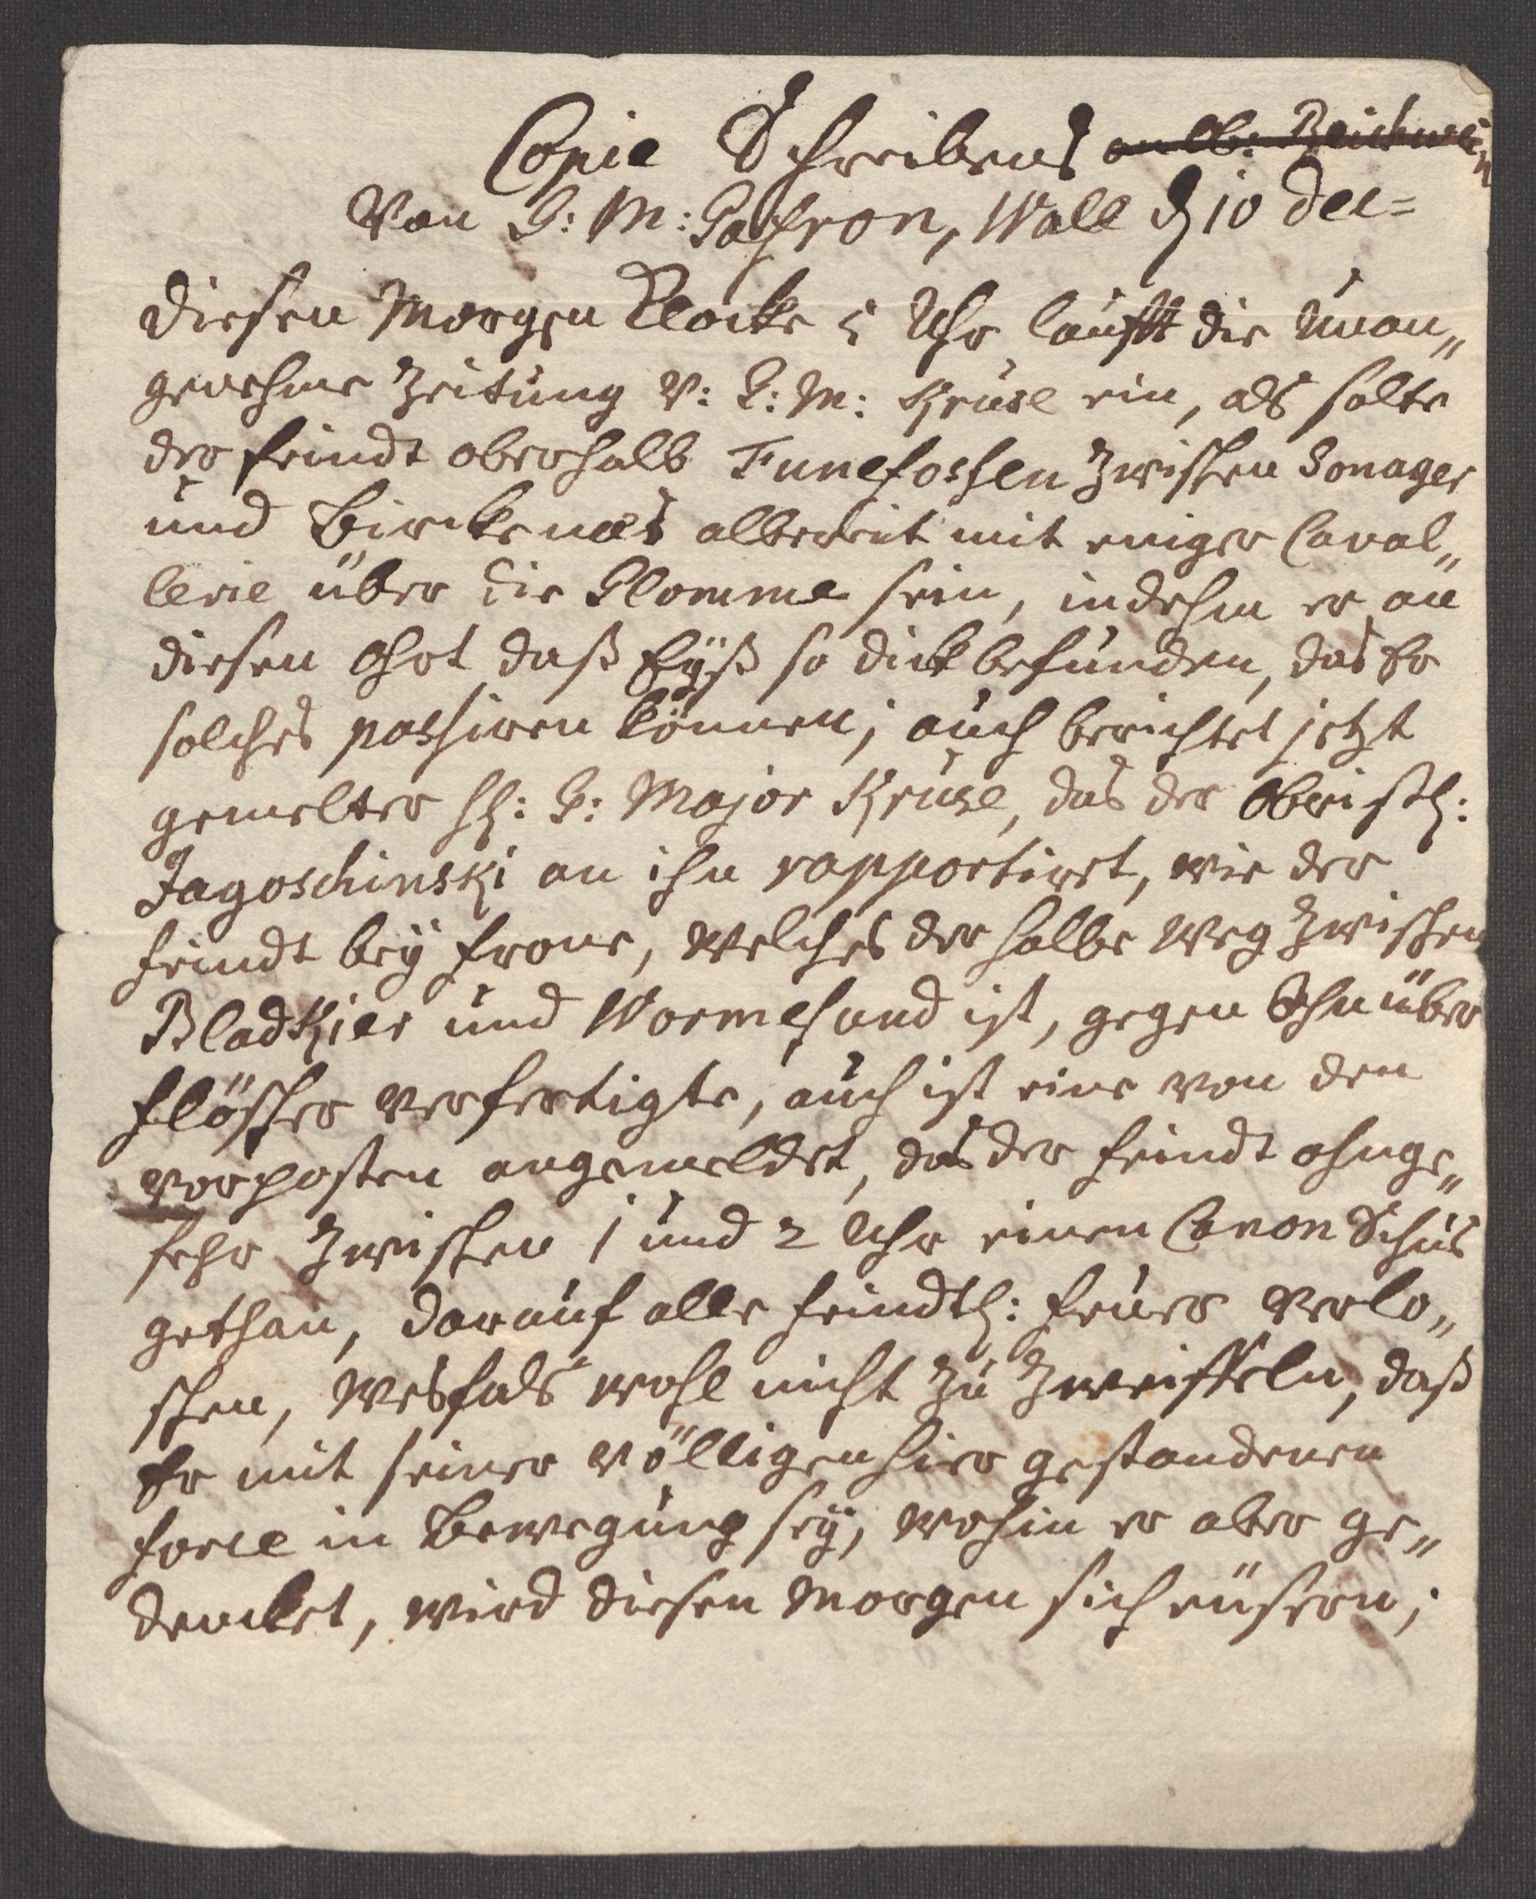 Copie Schreibens ~~an Ob: Reichwein~~
Von G: M: Gafron, Wall d 10 Dec=
diesen Morgen Klocke 5 Uhr laufft die unan„
genehme Zeitung v: G: M: Kruse ein, als solte
der feindt oberhalb Funefossen zwischen Sonager
und Birckenæs albereit mit einiger Caval„
lerie über die Glomme sein, indehm er an
diesen Ohrt daß Eÿß so dick befunden, das Er
solches passiren können; auch berichtet jetzt
gemelter H: G: Major Kruse, das der Obristl:
Jagoschinski an ihn rapportiret, wie der
feindt beÿ frone, welches der halbe weg zwischen
Bladkier und Wormesund ist, gegen Ihn über
flösser verfertigte, auch ist eine von den
vorposten angemeldet, das der feindt ohnge„
fehr zwischen 1 und 2 Uhr einen Canon Schus
gethan, darauf alle feindtl: feuer verlo„
schen, wesfals wohl nicht zu zweiffeln, daß
Er mit seiner völligen hier gestandenen
force in bewegung seÿ, wohin er aber ge„
dencket, wird diesen Morgen sich eüsern;